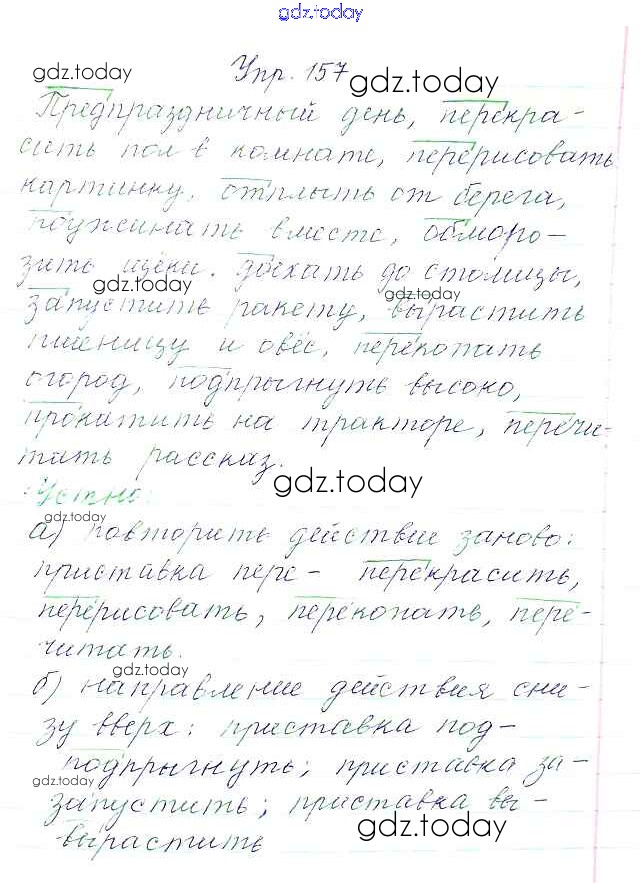 gdz.today
Упр. 157
gdz.today gdz.today
Предпраздничный день, перекра-
сить пол в комнате, перерисовать
картинку, отплыть от берега,
поужинать вместе, обморо-
зить щёки. доехать до столицы,
gdz.today gdz.today
запустить ракету, вырастить
пшеницу и овёс, перекопать
огород, подпрыгнуть высоко,
прокатить на тракторе, перечи-
тать рассказ.
gdz.today
Устно:
gdz.today
а) повторить действие заново:
приставка пере- перекрасить,
перерисовать, перекопать, пере-
читать.
gdz.today
б) направление действия сни-
зу вверх: приставка под-
подпрыгнуть; приставка за-
gdz.today
запустить; приставка вы-
вырастить
gdz.today